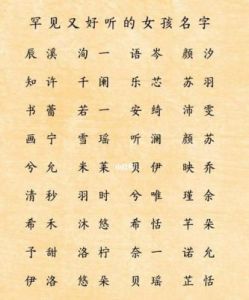 罕见又好听的女孩名字
辰溪 洵一 语岑 颜汐
知许 千阑 乐芯 苏羽
书蕾 若一 安绮 沛雯
画宁 雪瑶 听澜 颜苏
兮允 米莱 贝伊 映乔
清秒 羽时 兮唯 瑾余
希禾 沐悠 希恬 芊朵
予甜 洛柠 奈一 诺允
伊洛 悠朵 贝瑶 芷恬